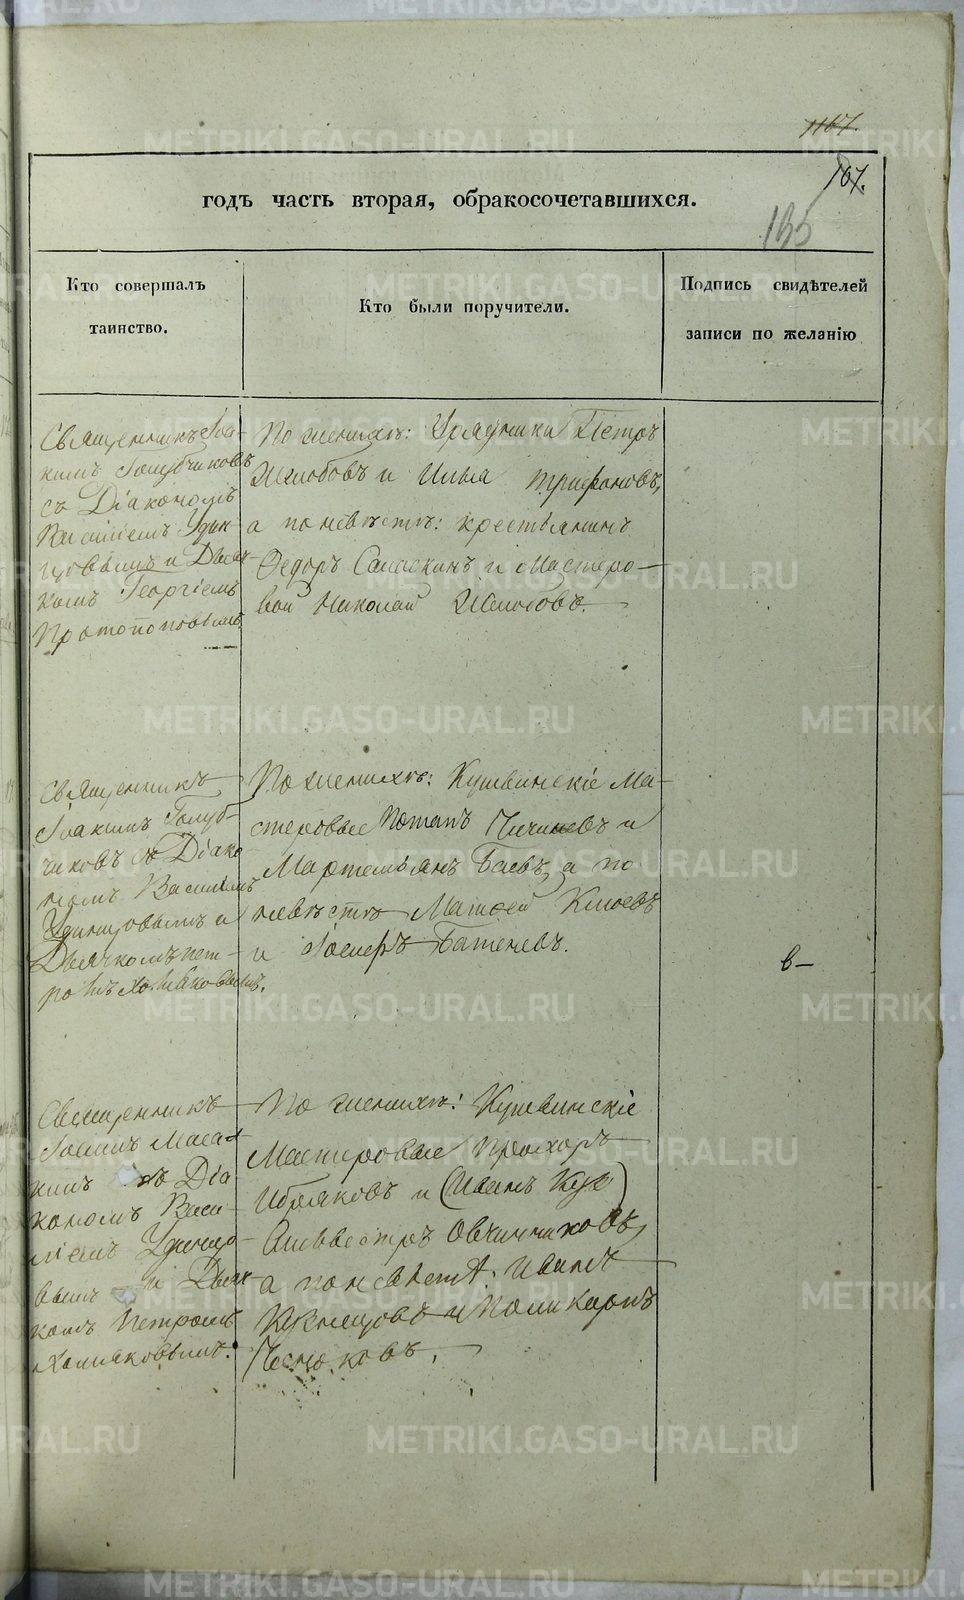 1167.
167.
135
годъ часть вторая, обракосочетавшихся.
Кто совершалъ
таинство.
Кто были поручители.
Подпись свидѣтелей
записи по желанію
Священникъ Іоа-
кимъ Голубчиковъ
съ Діакономъ
Василіемъ Удин-
цовымъ и Дьяч-
комъ Георгіемъ
Протопоповымъ.
По женихѣ: Урядники Петръ
Желобовъ и Илья Трифоновъ,
а по невѣстѣ: крестьянинъ
Ѳедоръ и Мастеро-
вой Николай
Священникъ
Іоакимъ Голуб-
чиковъ съ Діако-
номъ Василіемъ
Удинцовымъ и
Дьячкомъ Пет-
ромъ Хомяковымъ.
По женихѣ: Кушвинскіе Ма-
стеровые Потапъ и
Мартемьянъ Баевъ, а по
невѣстѣ Матвей
и Іосифъ Батеневъ.
в-
Священникъ
Іоаннъ
съ Діа-
кономъ Васи-
ліемъ Удинцо-
вымъ и Дьяч-
комъ Петромъ
Хомяковымъ.
По женихѣ: Кушвинскіе
Мастеровые Прохоръ
и (Иванъ Куз)
Сильвестръ Овчинниковъ,
а по невѣстѣ: Иванъ
Кузнецовъ и Поликарпъ
Чесноковъ.
METRIKI.GASO-URAL.RU